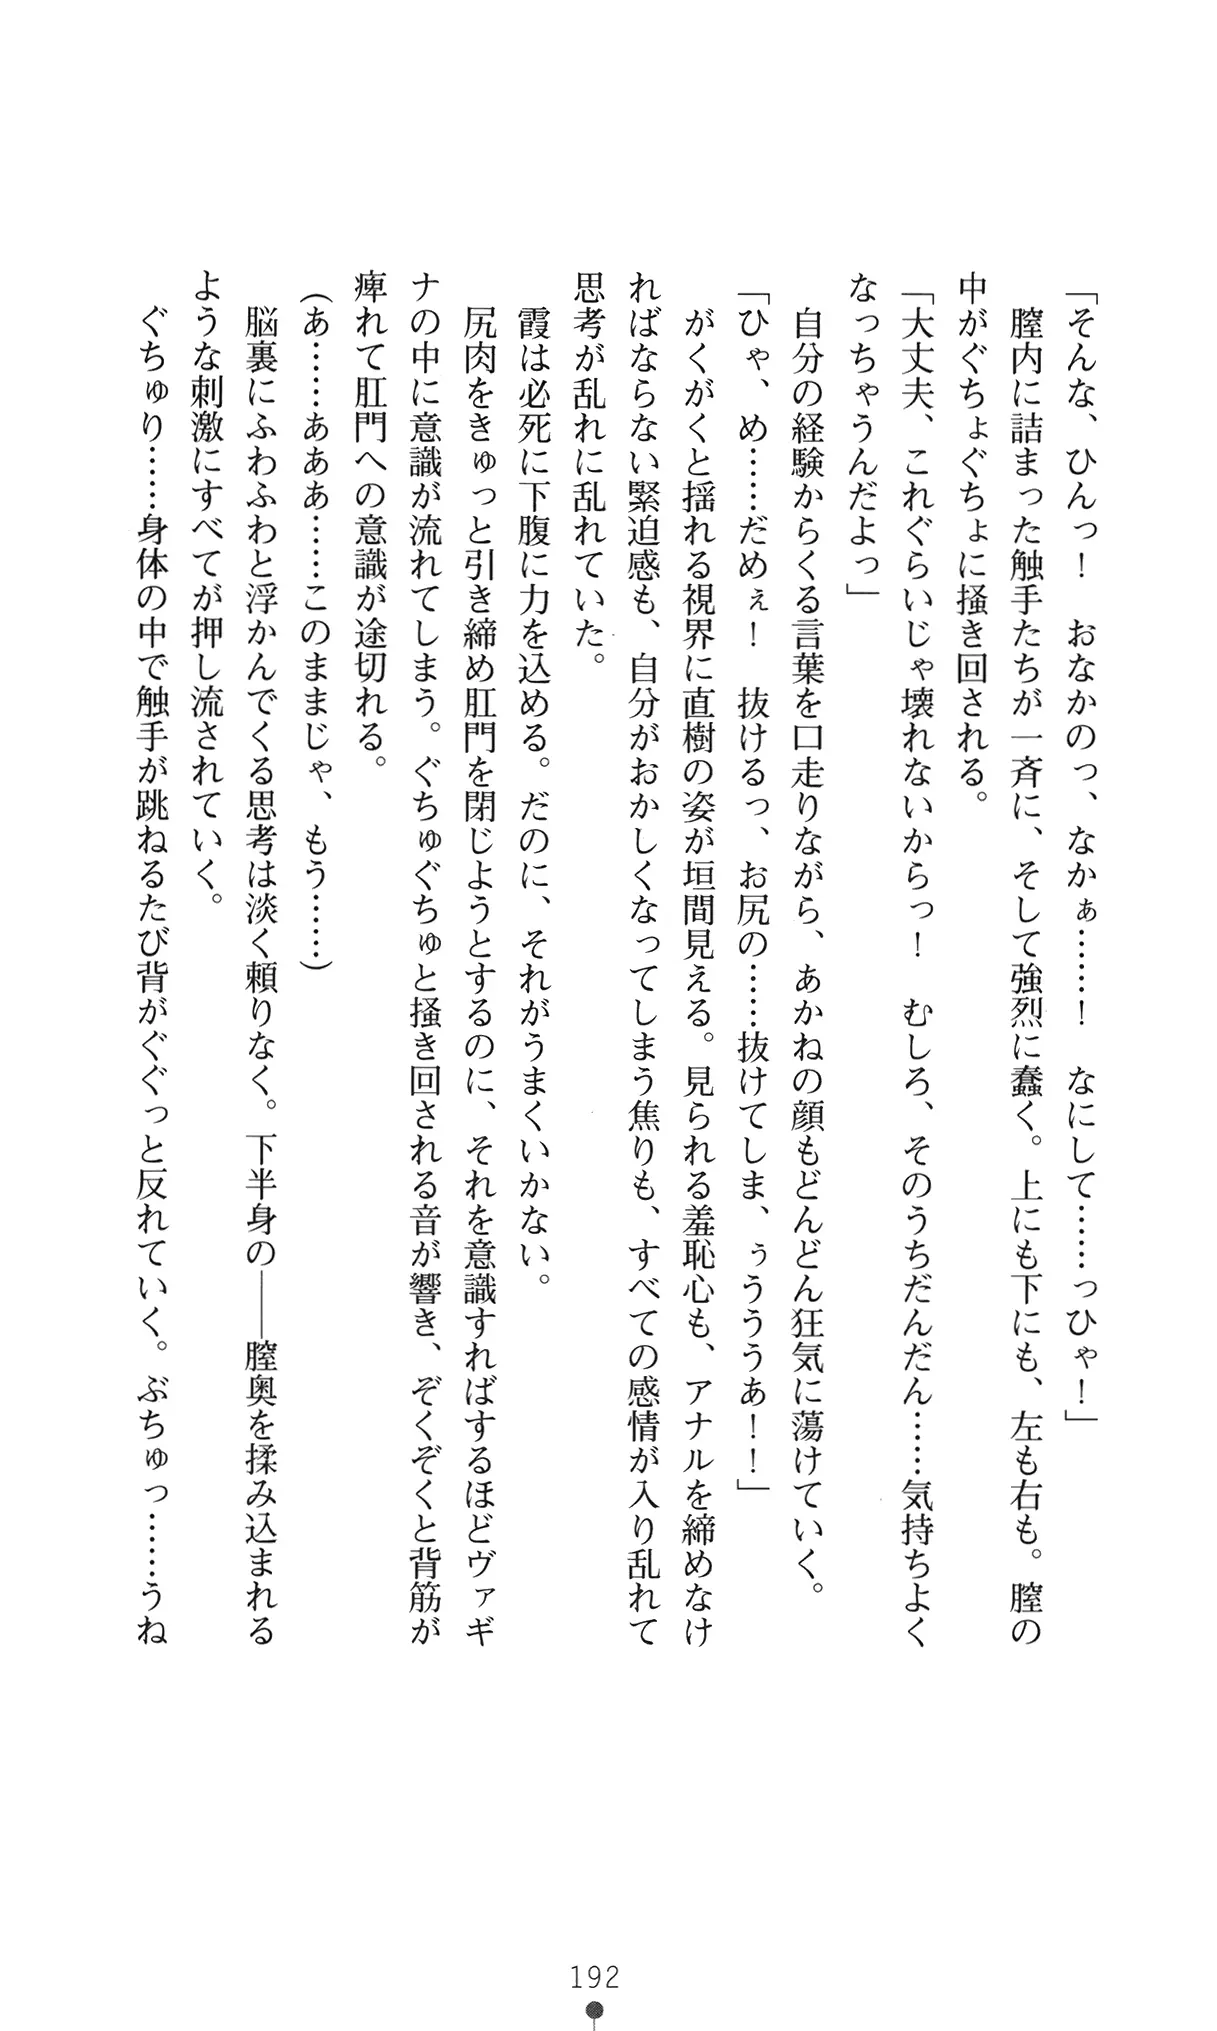 「そんな、ひんっ！　おなかのっ、なかぁ……！　なにして……っひゃ！」
　膣内に詰まった触手たちが一斉に、そして強烈に蠢く。上にも下にも、左も右も。膣の
中がぐちょぐちょに掻き回される。
「大丈夫、これぐらいじゃ壊れないからっ！　むしろ、そのうちだんだん……気持ちよく
なっちゃうんだよっ」
　自分の経験からくる言葉を口走りながら、あかねの顔もどんどん狂気に蕩けていく。
「ひゃ、め……だめぇ！　抜けるっ、お尻の……抜けてしま、ぅううあ！！」
　がくがくと揺れる視界に直樹の姿が垣間見える。見られる羞恥心も、アナルを締めなけ
ればならない緊迫感も、自分がおかしくなってしまう焦りも、すべての感情が入り乱れて
思考が乱れに乱れていた。
　霞は必死に下腹に力を込める。だのに、それがうまくいかない。
　尻肉をきゅっと引き締め肛門を閉じようとするのに、それを意識すればするほどヴァギ
ナの中に意識が流れてしまう。ぐちゅぐちゅと掻き回される音が響き、ぞくぞくと背筋が
痺れて肛門への意識が途切れる。
（あ……あああ……このままじゃ、もう……）
　脳裏にふわふわと浮かんでくる思考は淡く頼りなく。下半身の――膣奥を揉み込まれる
ような刺激にすべてが押し流されていく。
　ぐちゅり……身体の中で触手が跳ねるたび背がぐぐっと反れていく。ぶちゅっ……うね
192